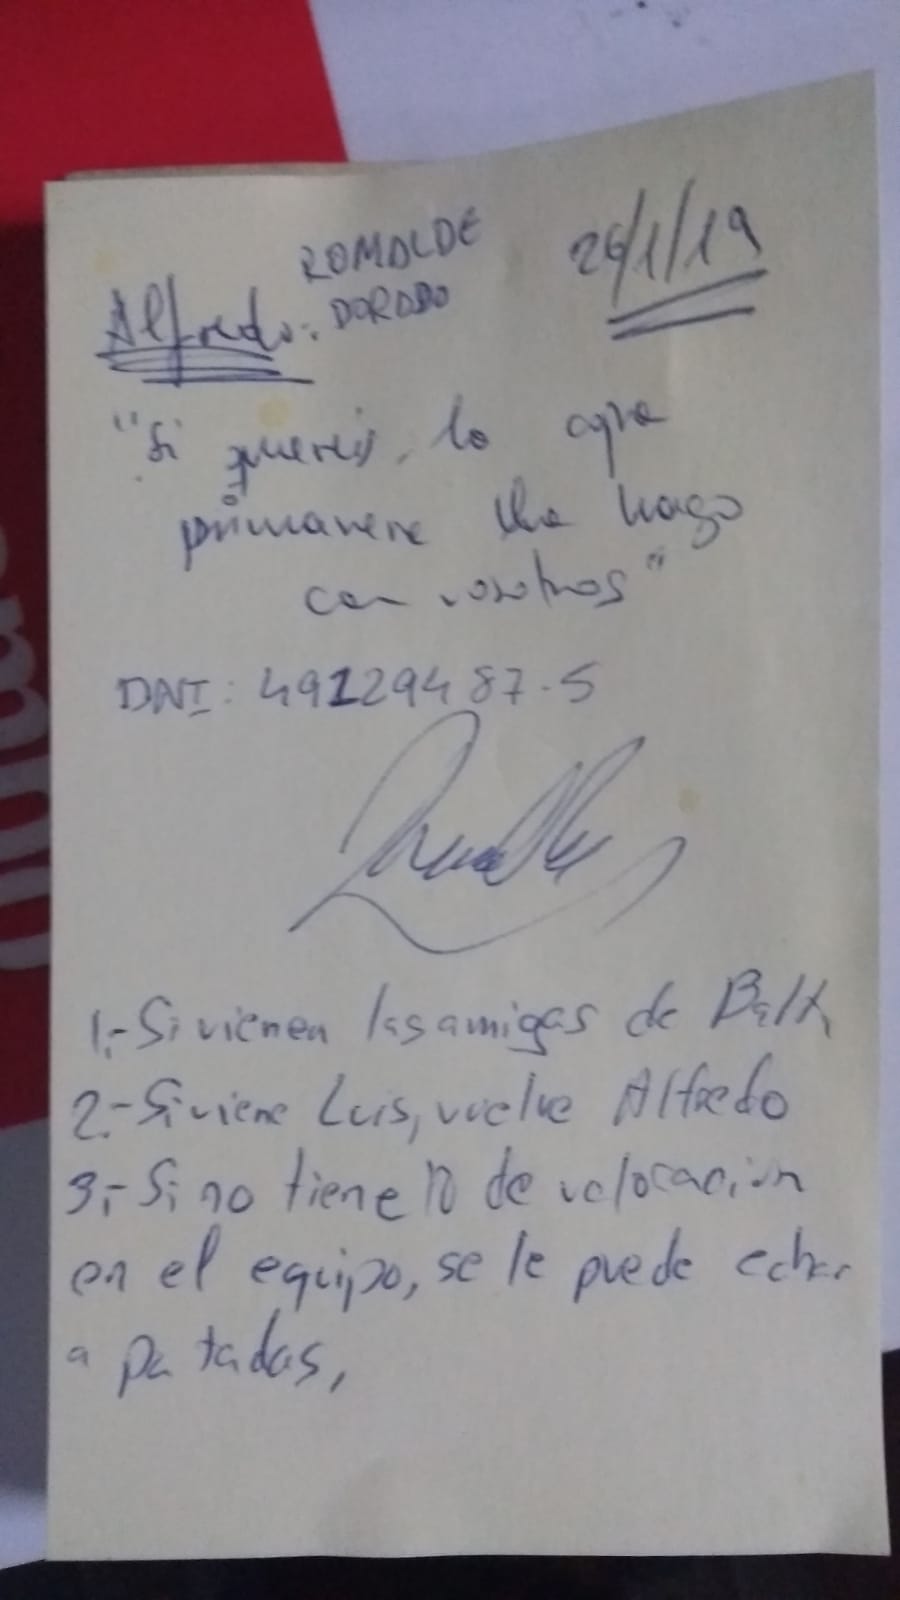 ROMALDE
Alfredo: DORADO
26/1/19
"Si queréis, lo copa
primavera la hago
con vosotros"
DNI: 49129487-S
1.- Si vienen las amigas de
2.- Si viene Luis, vuelve Alfredo
3.- Si no tiene 10 de valoración
en el equipo, se le puede echar
a patadas,